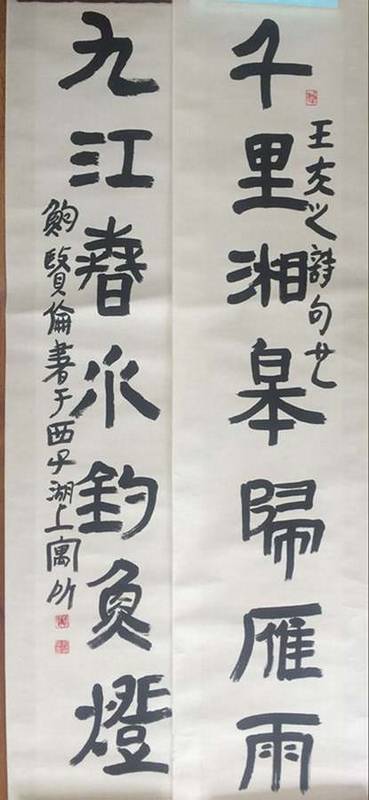 千里湘皋歸雁雨
王之詩句
九江春水釣魚燈
鮑賢倫書于西子湖上寓所